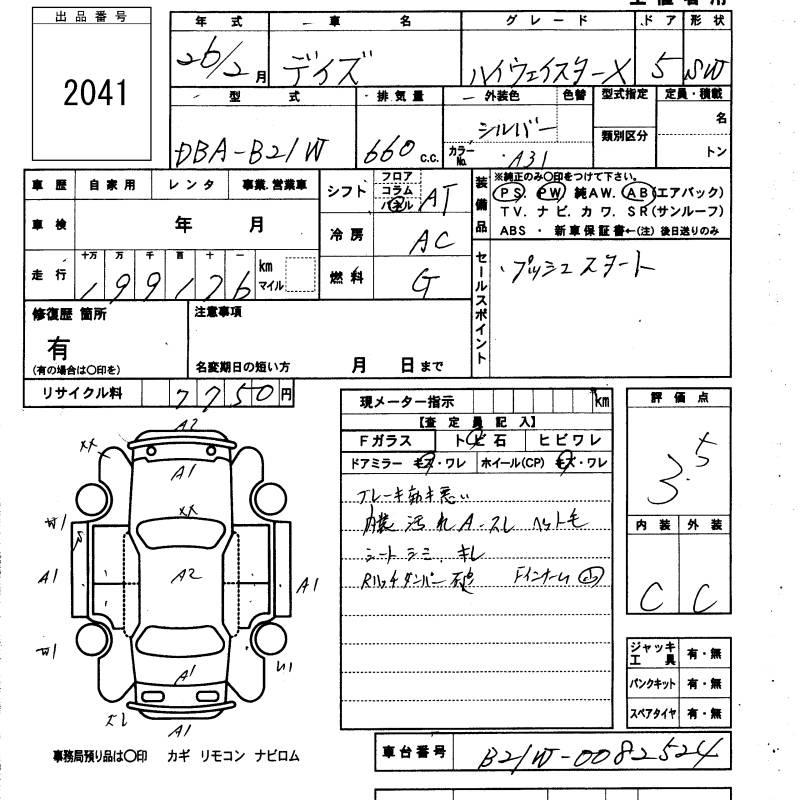 出品番号
2041
年式 車名 グレード ドア 形状
26/2月 デイズ ハイウェイスターX 5 SW
型式 排気量 外装色 色替 型式指定 定員・積載
DBA-B21W 660 c.c. シルバー 類別区分 名
カラーNo. A31 トン
車歴 自家用 レンタ 事業.営業車
車検 年 月
走行 十万 万 千 百 十 一
199176 km マイル
シフト フロア コラム パネル AT
冷房 AC
燃料 G
装備品 ※純正のみ〇印をつけて下さい。
PS. PW 純AW. AB(エアバック)
TV. ナビ. カワ. SR(サンルーフ)
ABS ・ 新車保証書←(注) 後日送りのみ
セールスポイント
プッシュスタート
修復歴 箇所
有
(有の場合は〇印を)
注意事項
名変期日の短い方 月 日まで
リサイクル料 7750円
現メーター指示 km
【査定員記入】
Fガラス トビ石 ヒビワレ
ドアミラー キズ・ワレ ホイール(CP) キズ・ワレ
ブレーキ効き悪い
内装 汚れ A-スレ ヘット毛
シート シミ、キレ
評価点
3.5
内装 外装
C C
A2
XX
A1
XX
W1
A1
A2
A1
W1
A1
A1
ジャッキ工具 有・無
パンクキット 有・無
スペアタイヤ 有・無
事務局預り品は〇印 カギ リモコン ナビロム
車台番号 B21W-0082524